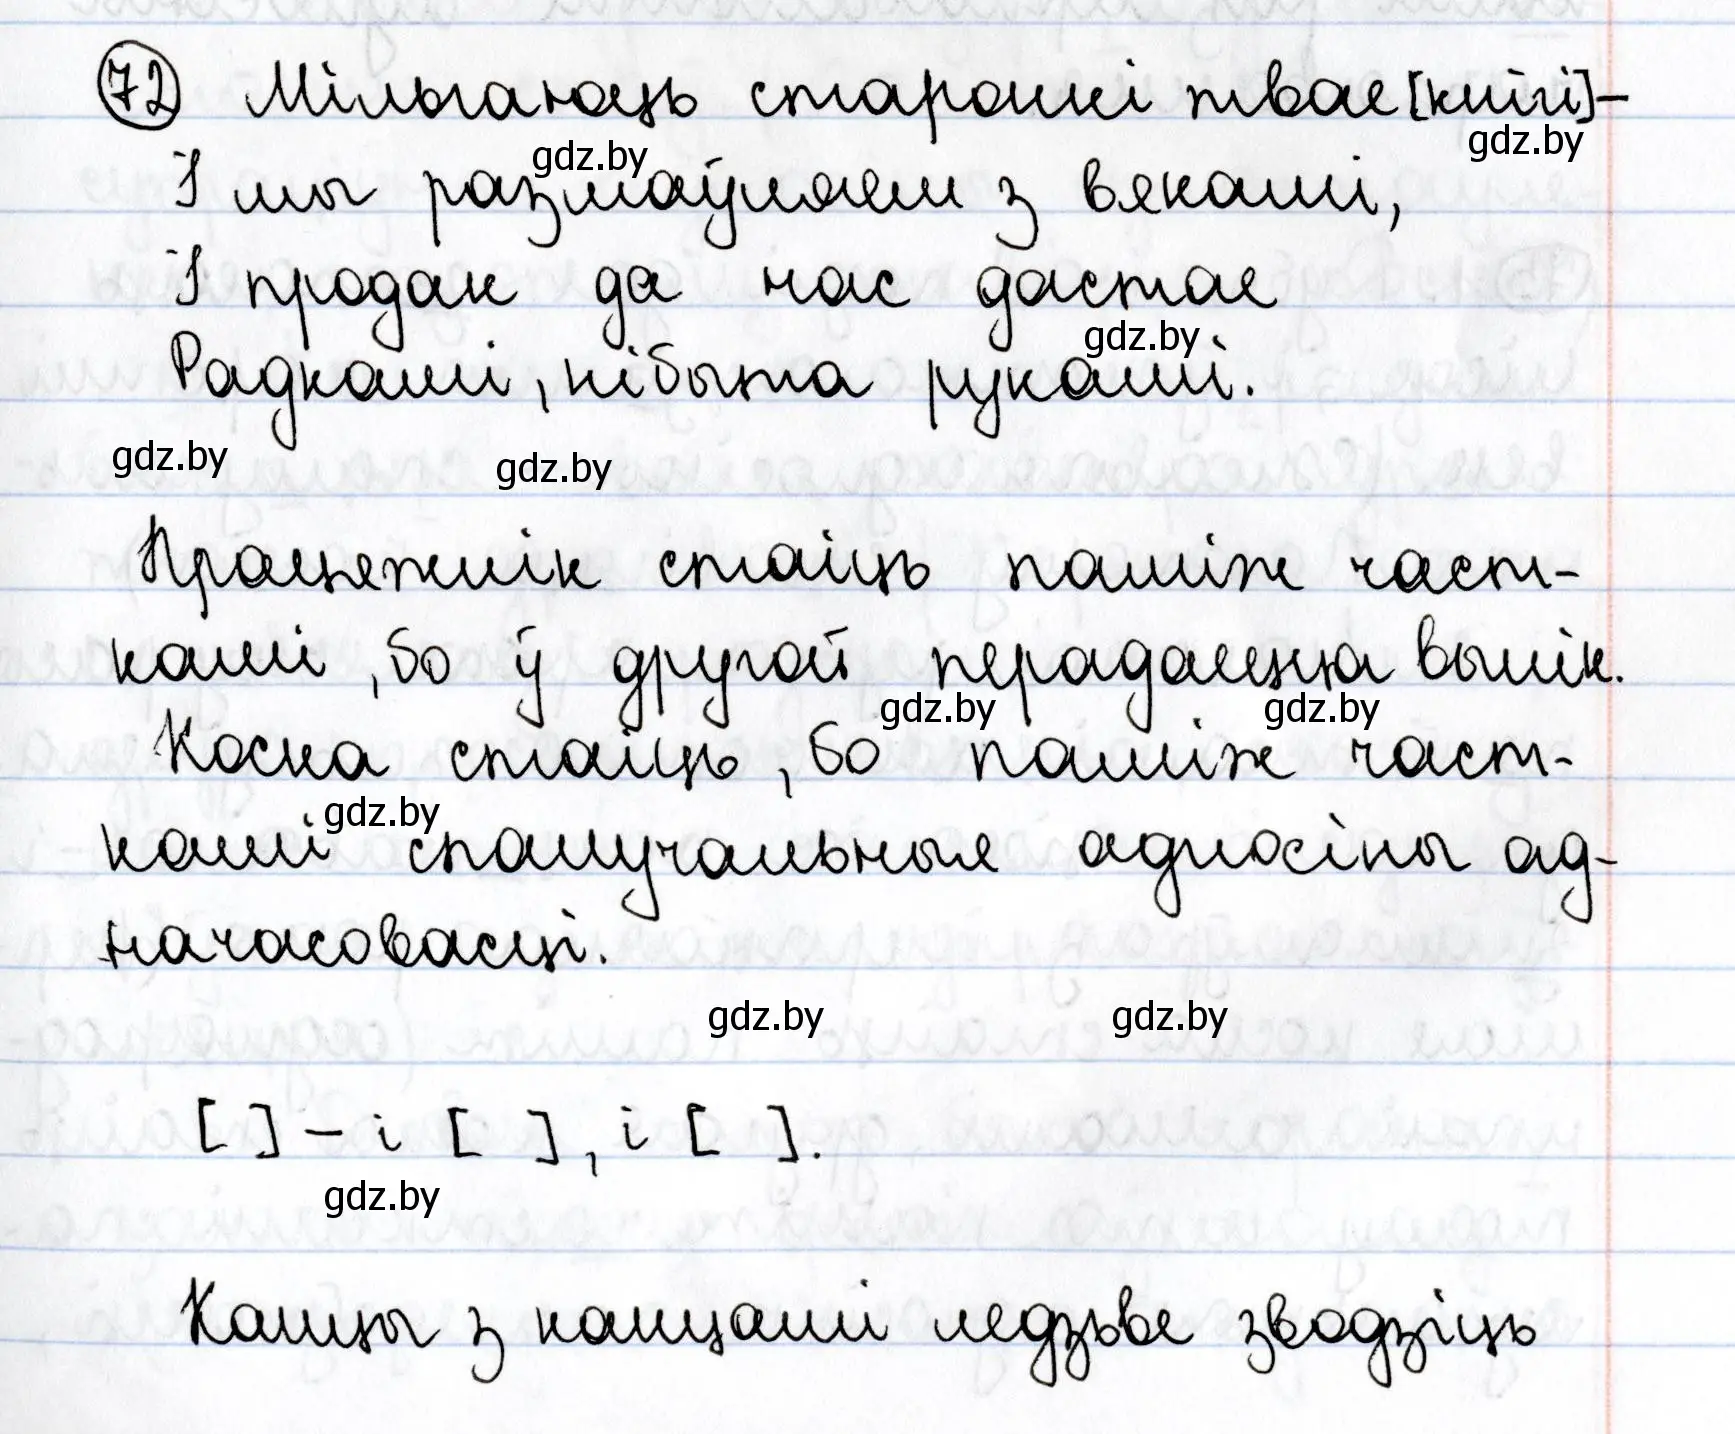 72 Мільгаюць старонкі твае [кнігі] –
gdz.by gdz.by
І мы размаўляем з вякамі,
І продак да нас дастае
gdz.by
Радкамі, нібыта рукамі.
gdz.by gdz.by
Працяжнік стаіць паміж част-
камі, бо ў другой перадаецца вынік.
gdz.by gdz.by
Коска стаіць, бо паміж част-
gdz.by
камі спалучальныя адносіны ад-
начасовасці.
gdz.by gdz.by
[ ] – і [ ], і [ ].
gdz.by
Канцы з канцамі ледзьве зводзіць